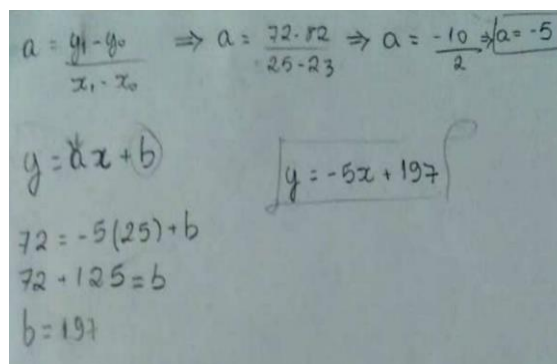 a = y₁-y₀ / x₁-x₀ ⇒ a = 72-82 / 25-23 ⇒ a = -10 / 2 ⇒ a = -5
y = ax + b
y = -5x + 197
72 = -5(25) + b
72 + 125 = b
b = 197